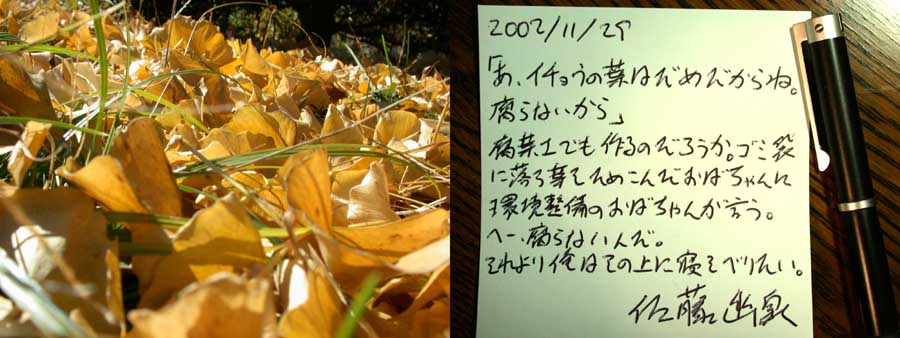 2002/11/29
「あ、イチョウの葉はだめだからね。
腐らないから」
腐葉土でも作るのだろうか。ゴミ袋
に落ち葉をためこんだおばちゃんに
環境整備のおばちゃんが言う。
へー、腐らないんだ。
それより俺はその上に寝そべりたい。
佐藤